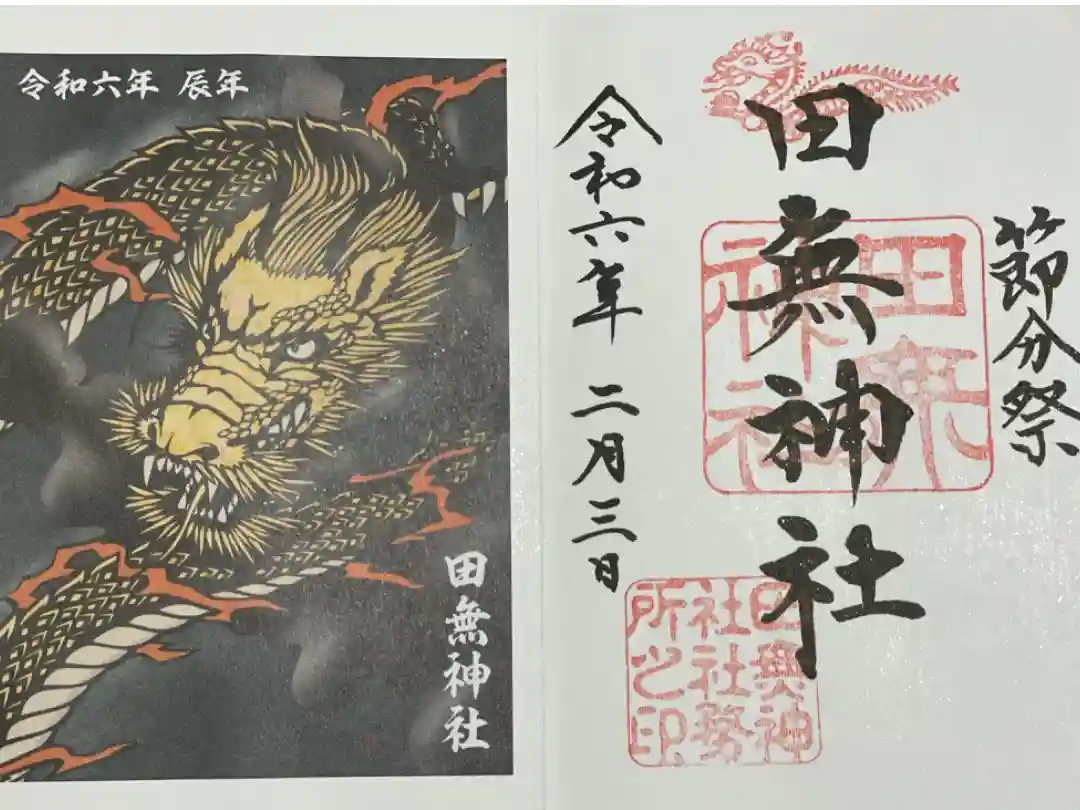 令和六年 辰年
田無神社
節分祭
田無神社
令和六年 二月三日
田無
神社
田無神
社社務
所之印